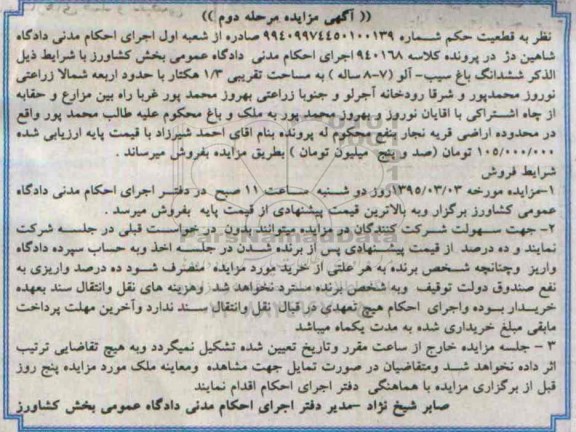 (( آگهی مزایده مرحله دوم ))
نظر به قطعیت حکم شماره ۹۹۴۰۹۹۷۴۴۵۰۱۰۰۱۳۹ صادره از شعبه اول اجرای احکام مدنی دادگاه
شاهین دژ در پرونده کلاسه ۹۴۰۱۶۸ اجرای احکام مدنی دادگاه عمومی بخش کشاورز با شرایط ذیل
الذکر ششدانگ باغ سیب- آلو (۷-۸ ساله ) به مساحت تقریبی ۱/۳ هکتار با حدود اربعه شمالا زراعتی
نوروز محمدپور و شرقا رودخانه آجرلو و جنوبا زراعتی بهروز محمد پور غربا راه بین مزارع و حقابه
از چاه اشتراکی با اقایان نوروز و بهروز محمد پور به ملک و باغ محکوم علیه طالب محمد پور واقع
در محدوده اراضی قریه نجار بنفع محکوم له پرونده بنام اقای احمد شیرزاد با قیمت پایه ارزیابی شده
۱۰۵/۰۰۰/۰۰۰ تومان (صد و پنج میلیون تومان ) بطریق مزایده بفروش میرساند
شرایط فروش
۱-مزایده مورخه ۱۳۹۵/۰۳/۰۳روز دو شنبه ساعت ۱۱ صبح در دفتر اجرای احکام مدنی دادگاه
عمومی کشاورز برگزار وبه بالاترین قیمت پیشنهادی از قیمت پایه بفروش میرسد .
۲- جهت سهولت شرکت کنندگان در مزایده میتوانند بدون در خواست قبلی در جلسه شرکت
نمایند و ده درصد از قیمت پیشنهادی پس از برنده شدن در جلسه اخذ وبه حساب سپرده دادگاه
واریز وچنانچه شخص برنده به هر علتی از خرید مورد مزایده منصرف شود ده درصد واریزی به
نفع صندوق دولت توقیف وبه شخص برنده مسترد نخواهد شد وهزینه های نقل وانتقال سند بعهده
خریدار بوده واجرای احکام هیچ تعهدی در قبال نقل وانتقال سند ندارد وآخرین مهلت پرداخت
مابقی مبلغ خریداری شده به مدت یکماه میباشد
۳ - جلسه مزایده خارج از ساعت مقرر وتاریخ تعیین شده تشکیل نمیگردد وبه هیچ تقاضایی ترتیب
اثر داده نخواهد شد ومتقاضیان در صورت تمایل جهت مشاهده ومعاینه ملک مورد مزایده پنج روز
قبل از برگزاری مزایده با هماهنگی دفتر اجرای احکام اقدام نمایند
صابر شیخ نژاد –مدیر دفتر اجرای احکام مدنی دادگاه عمومی بخش کشاورز
ParsNamadData